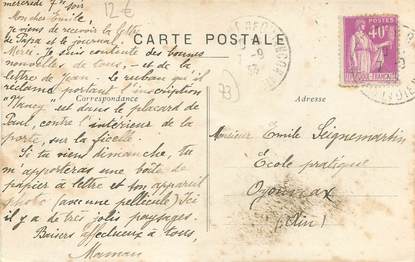 mercredi 7h soir
12 €
Mon cher Emile,
Je viens de recevoir ta lettre
de Papa et le journal
Merci. Je suis contente des bonnes
nouvelles de tous, - et de la
lettre de Jean. - Le ruban qu'il
réclame portant l'inscription
"Nancy" est dans le placard de
Paul, contre l'intérieur de la
porte, sur la ficelle.
Si tu viens dimanche, tu
m'apporteras une boîte de
papier à lettre et ton appareil
photo (avec une pellicule) Ici
il y a de très jolis paysages.
Baisers affectueux à tous,
Maman
CARTE POSTALE
Correspondance
Adresse
73
40c
POSTES
Monsieur Emile Seignemartin
École pratique
Oyonnax
(Ain)